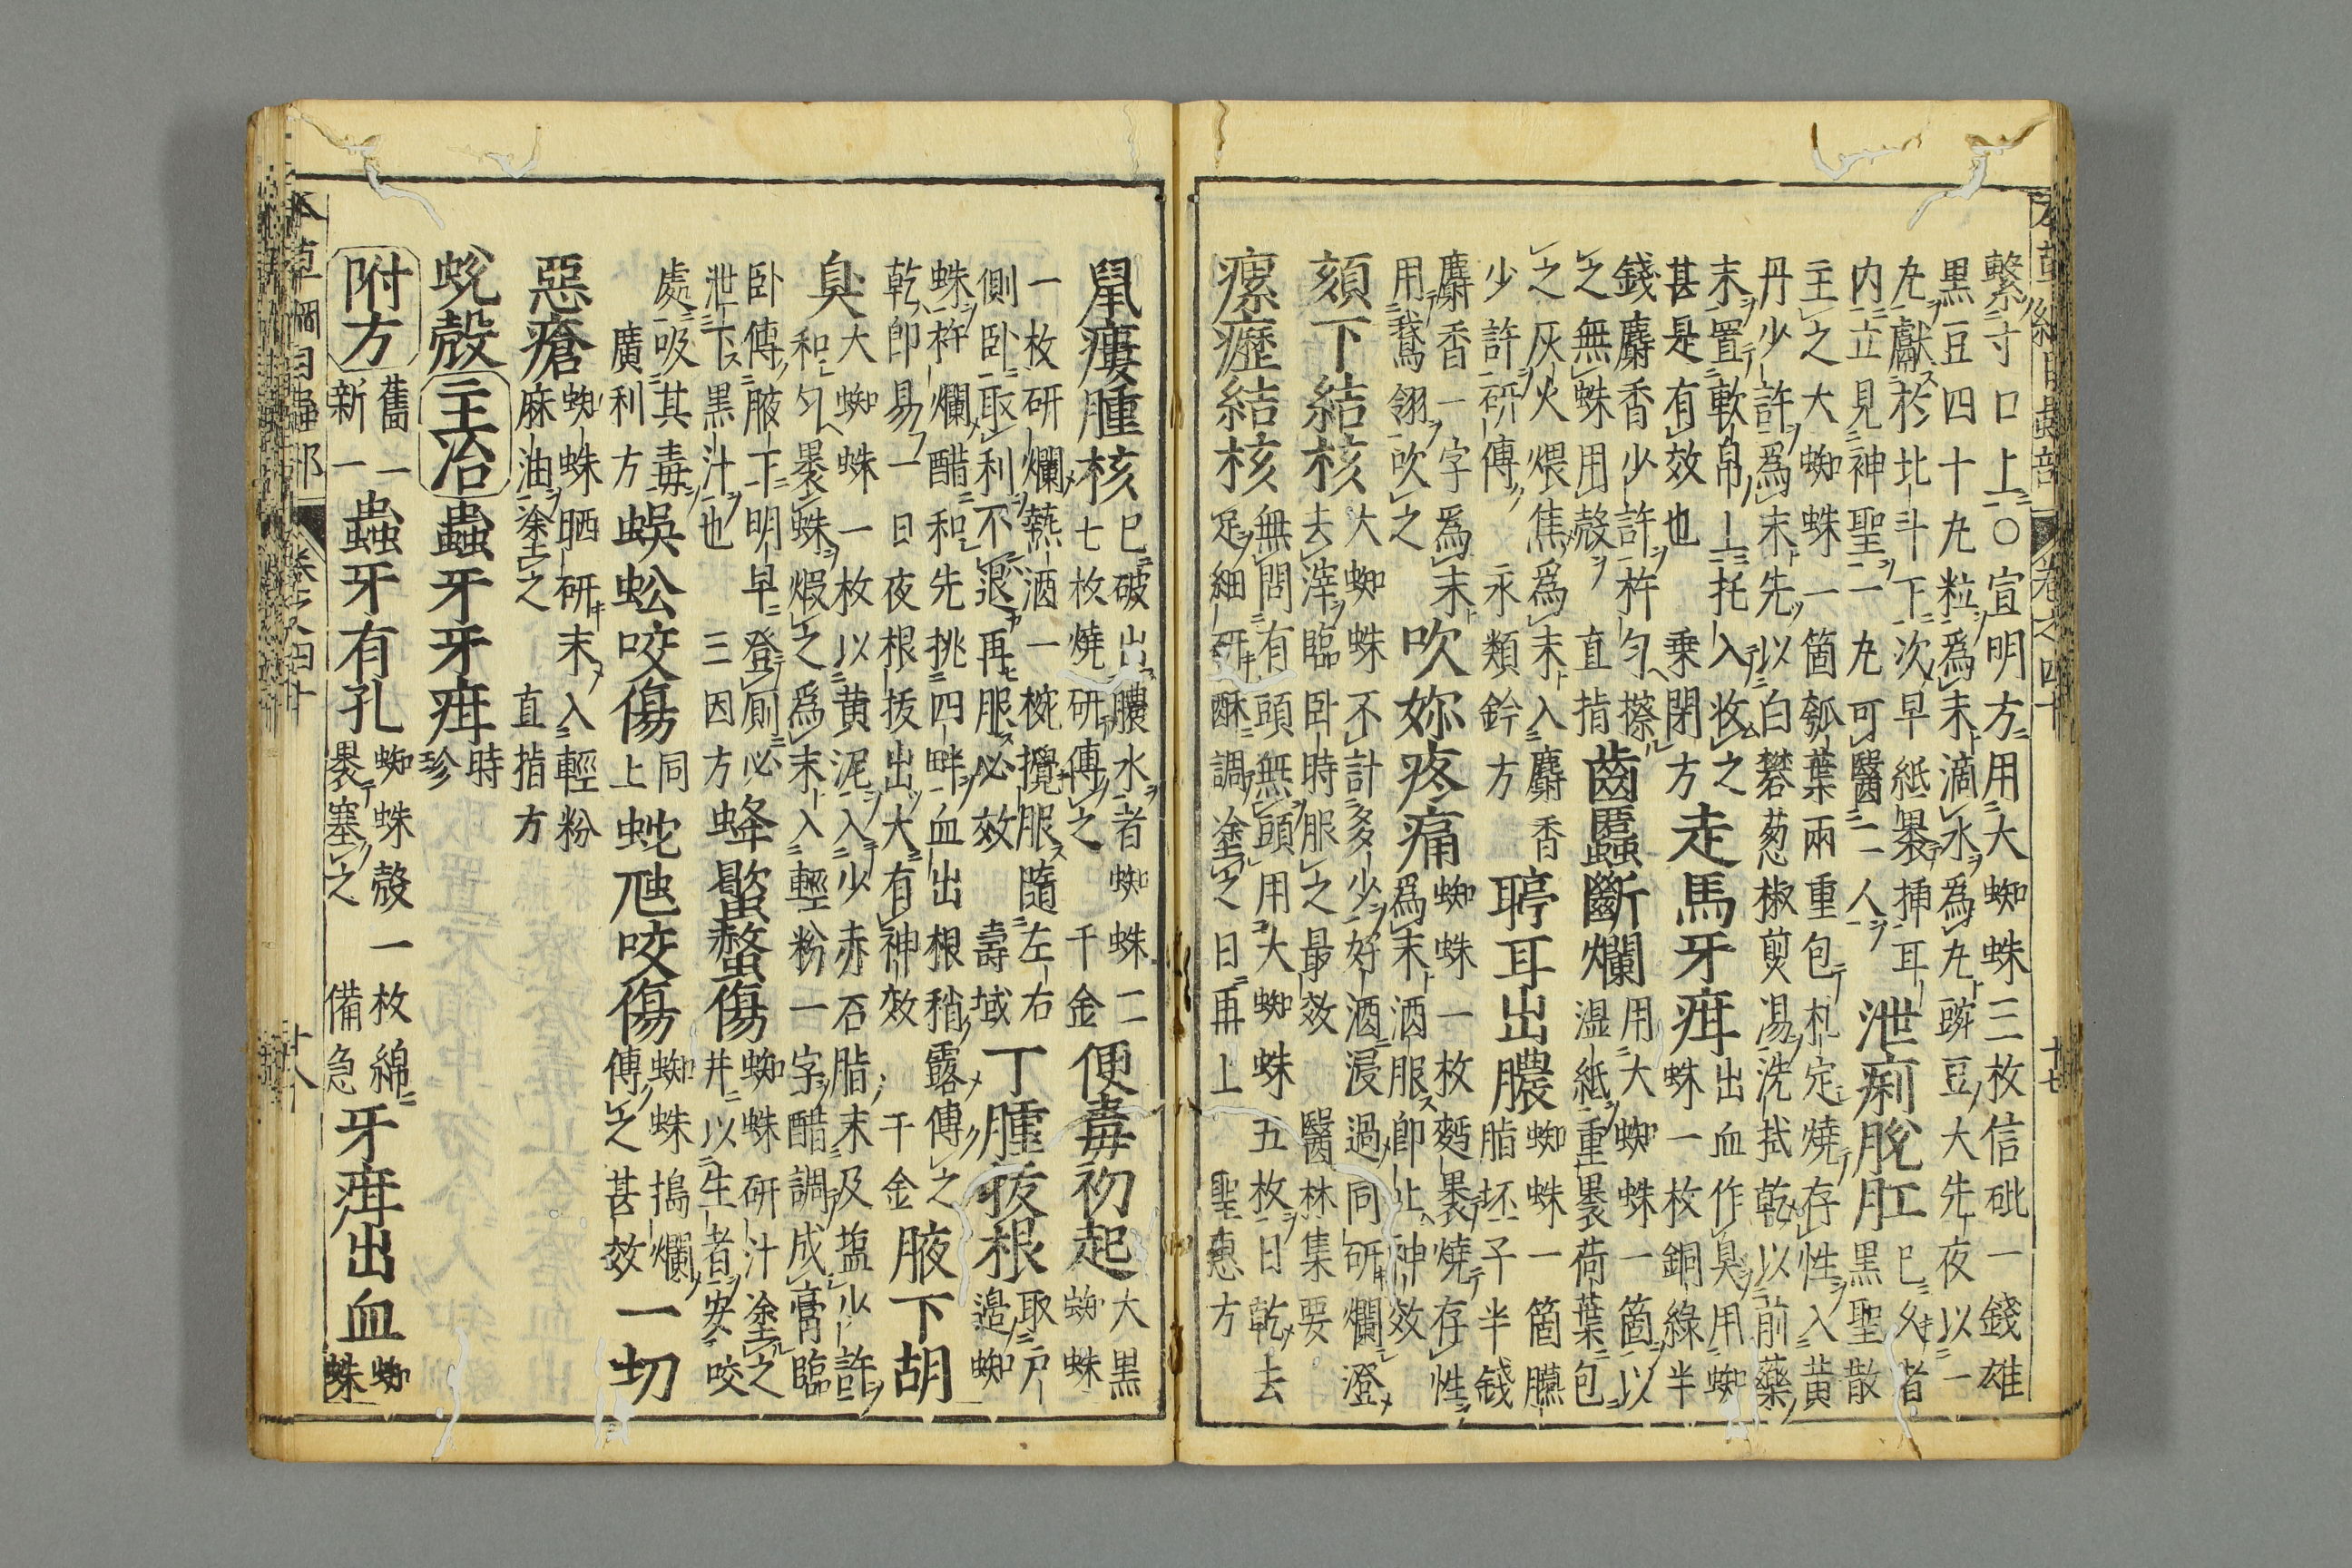 本草綱目蟲部 卷之四十 十七
繫寸口上○宣明方用大蜘蛛三枚信砒一錢雄
黑豆四十九粒爲末滴水爲丸豌豆大先夜以一
丸獻於北斗下次早紙褁揷耳
内立見神聖一丸可醫二人
泄痢脫肛
已久者
黑聖散
主之大蜘蛛一箇瓠葉兩重包札定燒存性入黄
丹少許爲末先以白礬葱椒煎湯洗拭乾以前藥
末置軟帛上托入收之
甚是有效也 乗閉方
走馬牙疳
出血作臭用蜘
蛛一枚銅綠半
錢麝香少許杵勻擦
之無蛛用殻 直指
齒䘌斷爛
用大蜘蛛一箇以
濕紙重褁荷葉包
之灰火煨焦爲末入麝香
少許研傅 永類鈐方
聤耳出膿
蜘蛛一箇臙
脂坯子半錢
麝香一字爲末
用鵞翎吹之
吹妳疼痛
蜘蛛一枚麪褁燒存性
爲末酒服卽止神效
頦下結核
大蜘蛛不計多少好酒浸過同研爛澄
去滓臨卧時服之最效 醫林集要
瘰癧結核
無問有頭無頭用大蜘蛛五枚日乾去
足細研酥調塗之日再上 聖惠方
鼠瘻腫核
已破出膿水者蜘蛛二
七枚燒研傅之 千金
便毒初起
大黑
蜘蛛
一枚研爛熱酒一椀攪服隨左右
側卧取利不退再服必效 壽域
丁腫拔根
取戸
邉蜘
蛛杵爛醋和先挑四畔血出根稍露傅之
乾卽易一日夜根拔出大有神效 千金
腋下胡
臭
大蜘蛛一枚以黄泥入少赤石脂末及塩少許
和匀褁蛛煆之爲末入輕粉一字醋調成膏臨
卧傅腋下明早登厠必
泄下黑汁也 三因方
蜂蠍螫傷
蜘蛛研汁塗之
井以生者安咬
處吸其毒
廣利方
蜈蚣咬傷
同
上
蛇虺咬傷
蜘蛛搗爛
傅之甚效
一切
惡瘡
蜘蛛晒研末入輕粉
麻油塗之 直指方
蛻殻 主治 蟲牙牙疳
時
珍
附方
舊一
新一
蟲牙有孔
蜘蛛殻一枚綿
褁塞之 備急
牙疳出血
蜘
蛛
本草綱目蟲部 卷之四十 十八